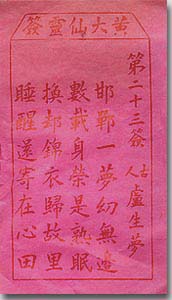 黃大仙靈簽
第二十三簽 古人 盧生夢
邯鄲一夢幻無邊
數載身榮是熟眠
換卻錦衣歸故里
睡醒還寄在心田